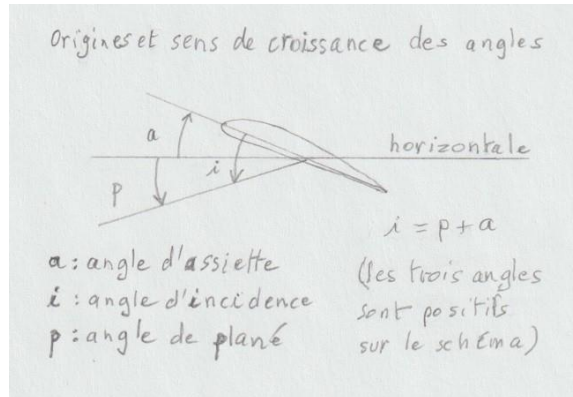 Origines et sens de croissance des angles
a
i
p
horizontale
i = p + a
a : angle d'assiette
i : angle d'incidence
p : angle de plané
(les trois angles
sont positifs
sur le schéma)